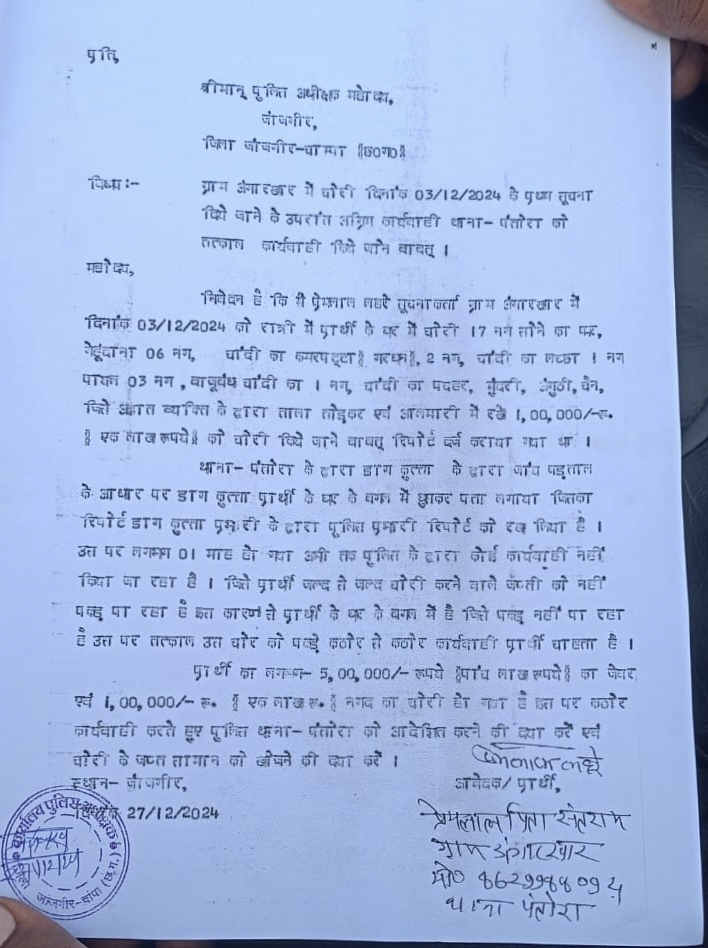 प्रति,
श्रीमान् पुलिस अधीक्षक महोदय,
जांजगीर,
जिला जांजगीर-चाम्पा §छ0ग0§
विषय:- ग्राम अंगारखार में चोरी दिनांक 03/12/2024 के प्रथम सूचना
दिये जाने के उपरांत अग्रिम कार्यवाही थाना- पंतोरा को
तत्काल कार्यवाही किये जाने बाबत् ।
महोदय,
निवेदन है कि मैं प्रेमलाल लहरे सूचनाकर्ता ग्राम अंगारखार में
दिनांक 03/12/2024 को रात्री में प्रार्थी के घर में चोरी 17 नग सोने का पत्र,
गेहूंदाना 06 नग, चांदी का कमरपट्टा§ करधन§, 2 नग, चांदी का लच्छा 1 नग
पायल 03 नग, बाजूबंध चांदी का 1 नग, चांदी का मुंदरी, अंगुठी, चैन,
जिसे अज्ञात व्यक्ति के द्वारा ताला तोड़कर एवं आलमारी में रखे 1,00,000/-रू.
§ एक लाख रूपये§ को चोरी किये जाने बाबत् रिपोर्ट दर्ज कराया गया था ।
थाना- पंतोरा के द्वारा डाग कुत्ता के द्वारा जांच पड़ताल
के आधार पर डाग कुत्ता प्रार्थी के घर के बगल में जाकर पता लगाया जिसका
रिपोर्ट डाग कुत्ता प्रभारी के द्वारा पुलिस प्रभारी रिपोर्ट को रख लिया है ।
उस पर लगभग 01 माह हो गया अभी तक पुलिस के द्वारा कोई कार्यवाही नहीं
किया जा रहा है । जिसे प्रार्थी जल्द से जल्द चोरी करने वाले को नहीं
पकड़ पा रहा है इस कारण से प्रार्थी के घर के बगल में है जिसे पकड़ नहीं पा रहा
है उस पर तत्काल उस चोर को पकड़े कठोर से कठोर कार्यवाही प्रार्थी चाहता है ।
प्रार्थी का लगभग- 5,00,000/- रूपये §पांच लाख रूपये§ का जेवर
एवं 1,00,000/- रू. § एक लाख रू.§ नगद का चोरी हो गया है इस पर कठोर
कार्यवाही करते हुए पुलिस थाना- पंतोरा को आदेशित करने की दया करें एवं
चोरी के जप्त सामान को की दया करें ।
स्थान- जांजगीर,
आवेदक/ प्रार्थी,
27/12/2024
प्रेमलाल पिता संतराम
ग्राम अंगारखार
थाना पंतोरा
कार्यालय पुलिस अधीक्षक
जांजगीर-चांपा (छ.ग.)